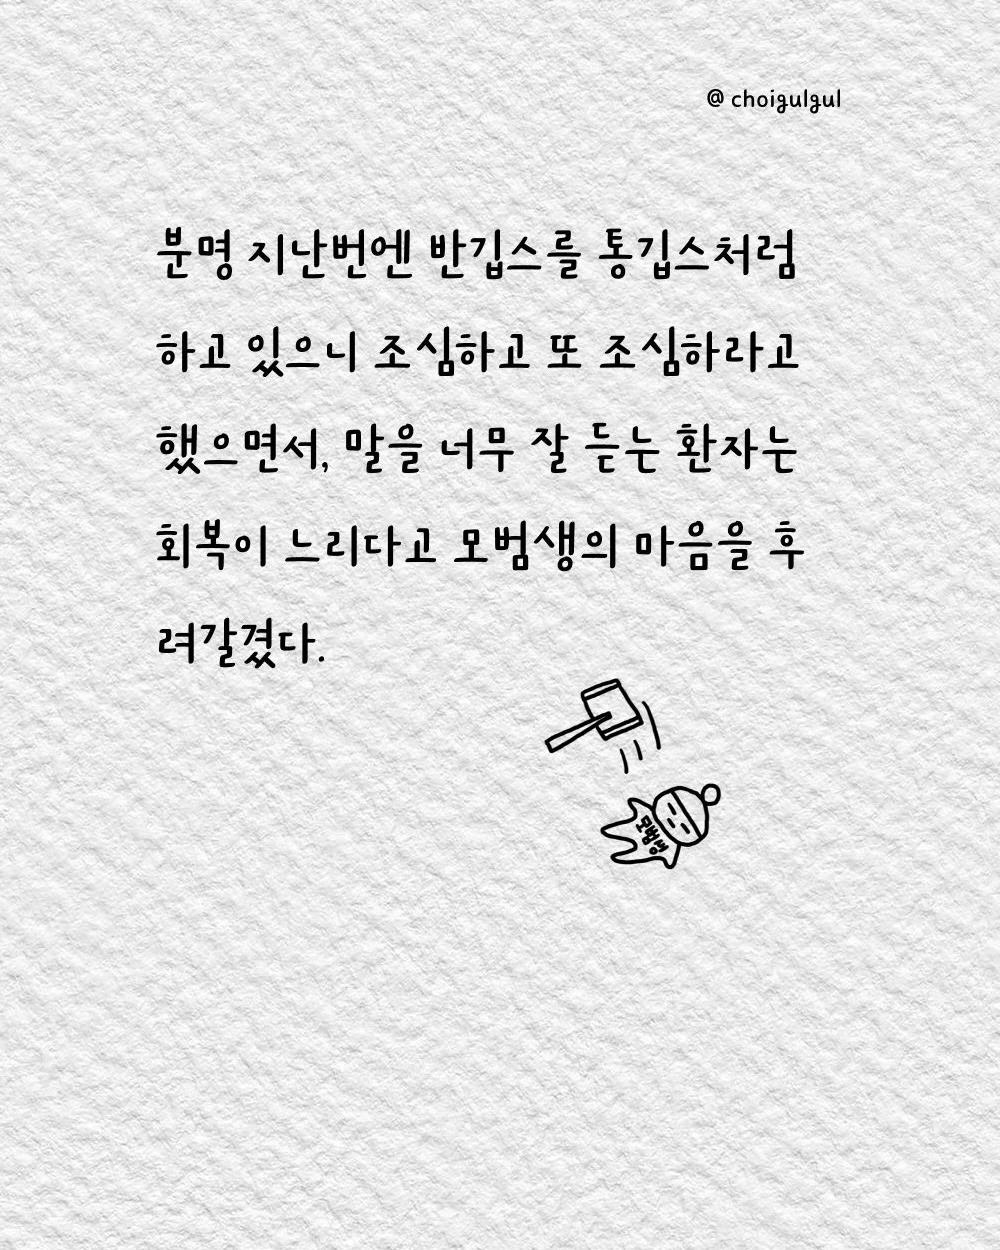 @ choigulgul
분명 지난번엔 반깁스를 통깁스처럼
하고 있으니 조심하고 또 조심하라고
했으면서, 말을 너무 잘 듣는 환자는
회복이 느리다고 모범생의 마음을 후
려갈겼다.
모범생